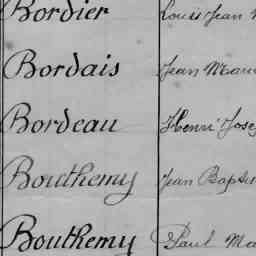 Bordier Louis Jean
Bordais Jean
Bordeau Henri
Bouthemy Jean
Bouthemy Paul